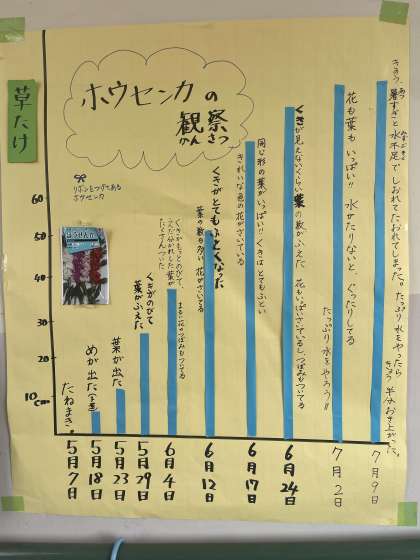 草たけ
ホウセンカの
観察
かんさつ
リボンをつけてある
ホウセンカ
60
50
40
30
20
10cm
たねまき
めが出た
葉が出た
くきがのびて
葉がふえた
くきがとても太くなった
葉の数が多い 花がさいてる
同じ形の葉がいっぱい!! くきは とてもふとい
きれいな色の花がさいている
くきが見えないくらい葉の数がふえた
花もいっぱいさいているし、つぼみもついてる
花も葉も いっぱい!! 水がたりないと、ぐったりしてる
たっぷり水をやろう!!
暑すぎと水不足でしおれてたおれてしまった。たっぷり水をやったら
半分おき上がった。
5月7日
5月18日
5月23日
5月29日
6月4日
6月12日
6月17日
6月24日
7月2日
7月9日